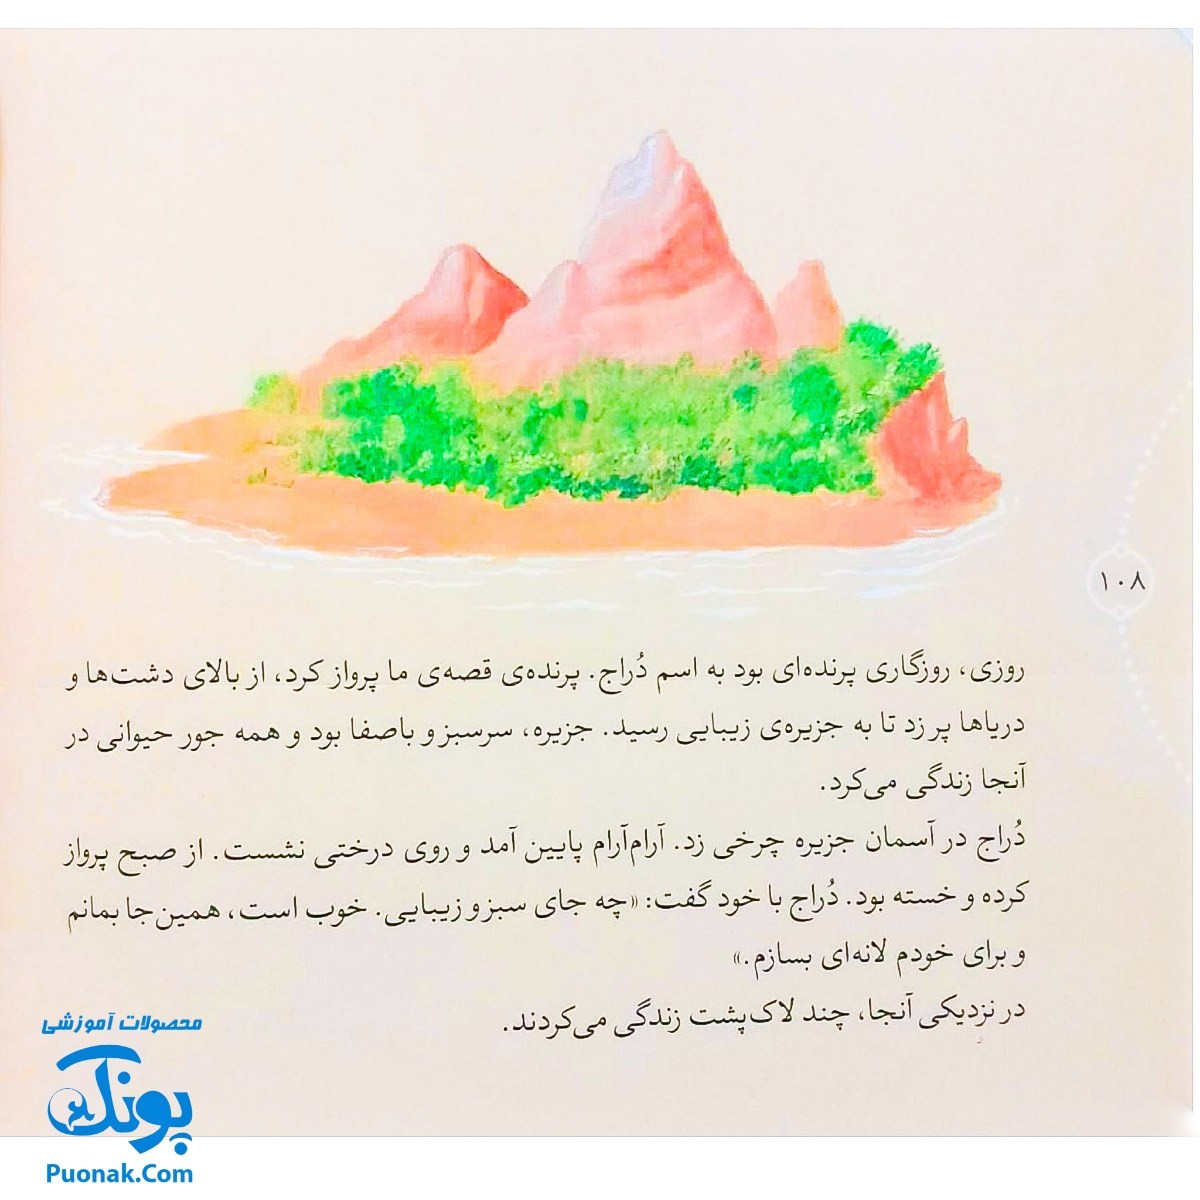 ۱۰۸
روزی، روزگاری پرنده‌ای بود به اسم دُراج. پرنده‌ی قصه‌ی ما پرواز کرد، از بالای دشت‌ها و
دریاها پر زد تا به جزیره‌ی زیبایی رسید. جزیره، سرسبز و باصفا بود و همه جور حیوانی در
آنجا زندگی می‌کرد.
دُراج در آسمان جزیره چرخی زد. آرام‌آرام پایین آمد و روی درختی نشست. از صبح پرواز
کرده و خسته بود. دُراج با خود گفت: «چه جای سبز و زیبایی. خوب است، همین‌جا بمانم
و برای خودم لانه‌ای بسازم.»
در نزدیکی آنجا، چند لاک‌پشت زندگی می‌کردند.
محصولات آموزشی
پونک
Puonak.Com